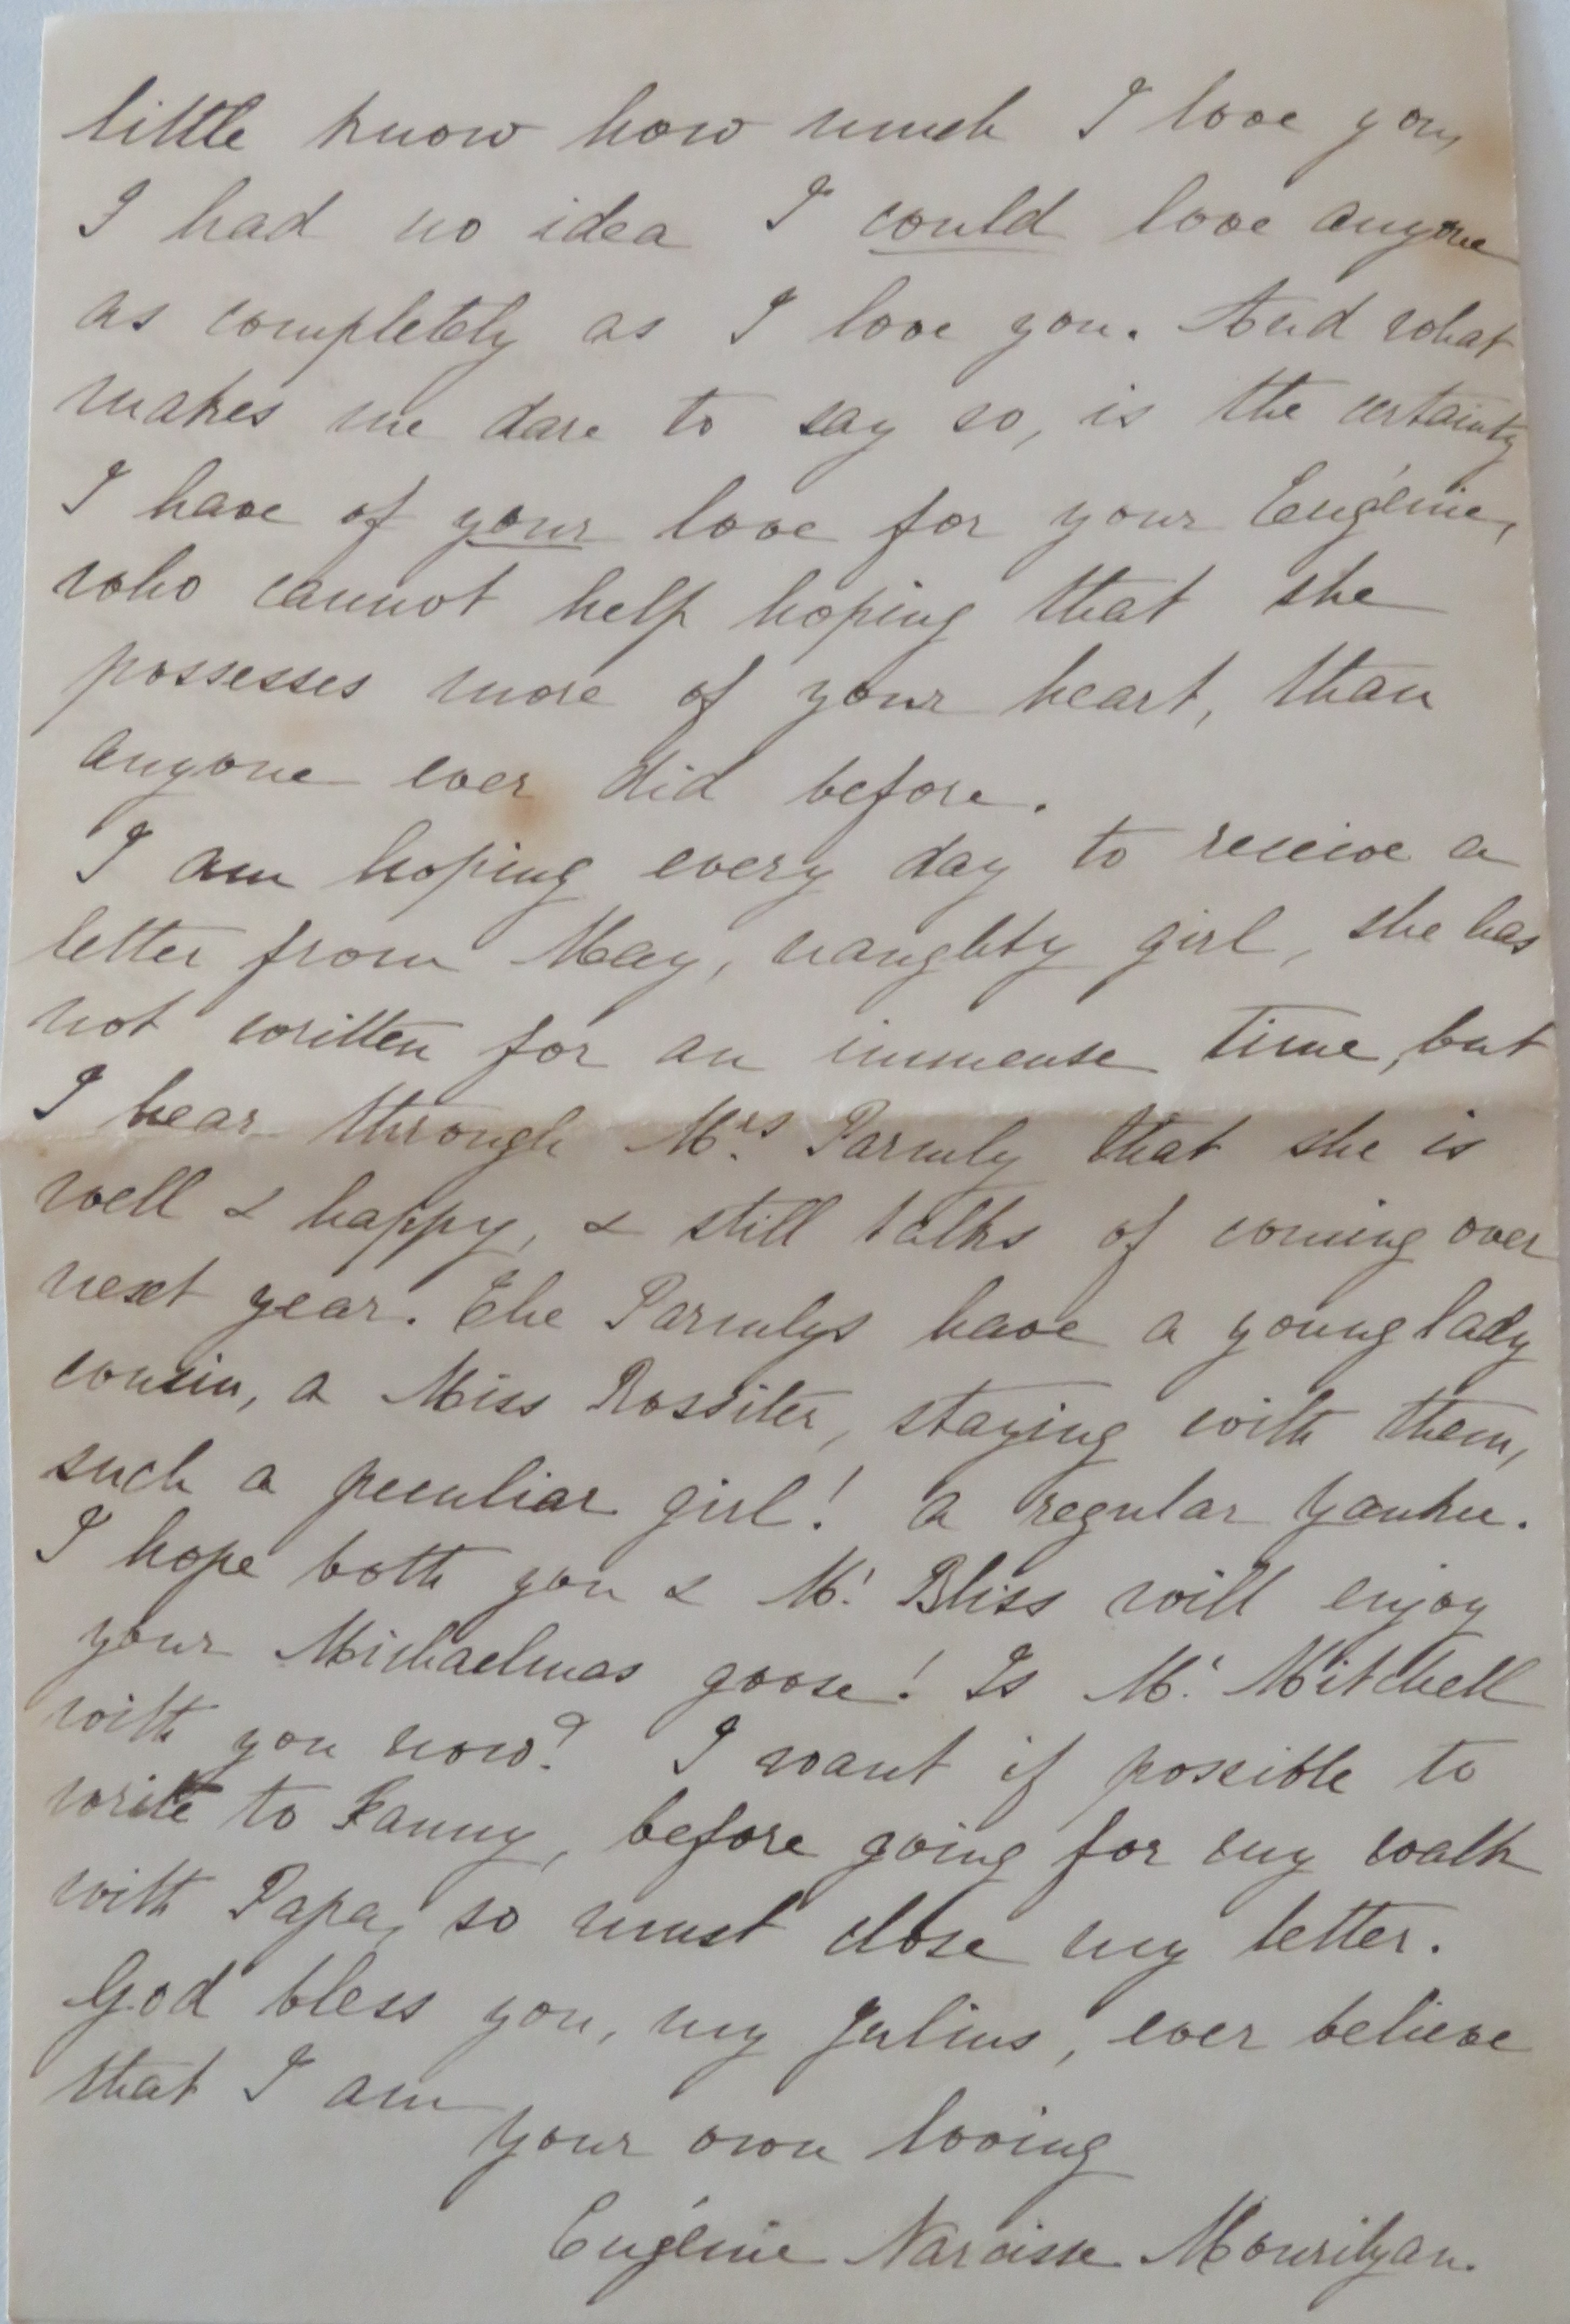 little know how much I love you,
I had no idea I could love anyone
as completely as I love you. And what
makes me dare to say so, is the certainty
I have of your love for your Eugénie,
who cannot help hoping that she
possesses more of your heart, than
anyone ever did before.
I am hoping every day to receive a
letter from May, naughty girl, she has
not written for an immense time, but
I hear through Mrs. Parmly that she is
well & happy, & still talks of coming over
next year. The Parmlys have a young lady
cousin, a Miss Rossiter, staying with them,
such a peculiar girl! a regular Yankee.
I hope both you & Mr. Bliss will enjoy
your Michaelmas goose! Is Mr. Mitchell
with you now? I want if possible to
write to Fanny, before going for my walk
with Papa, so must close my letter.
God bless you, my Julius, ever believe
that I am
your own loving
Eugénie Narcisse Mourilyan.